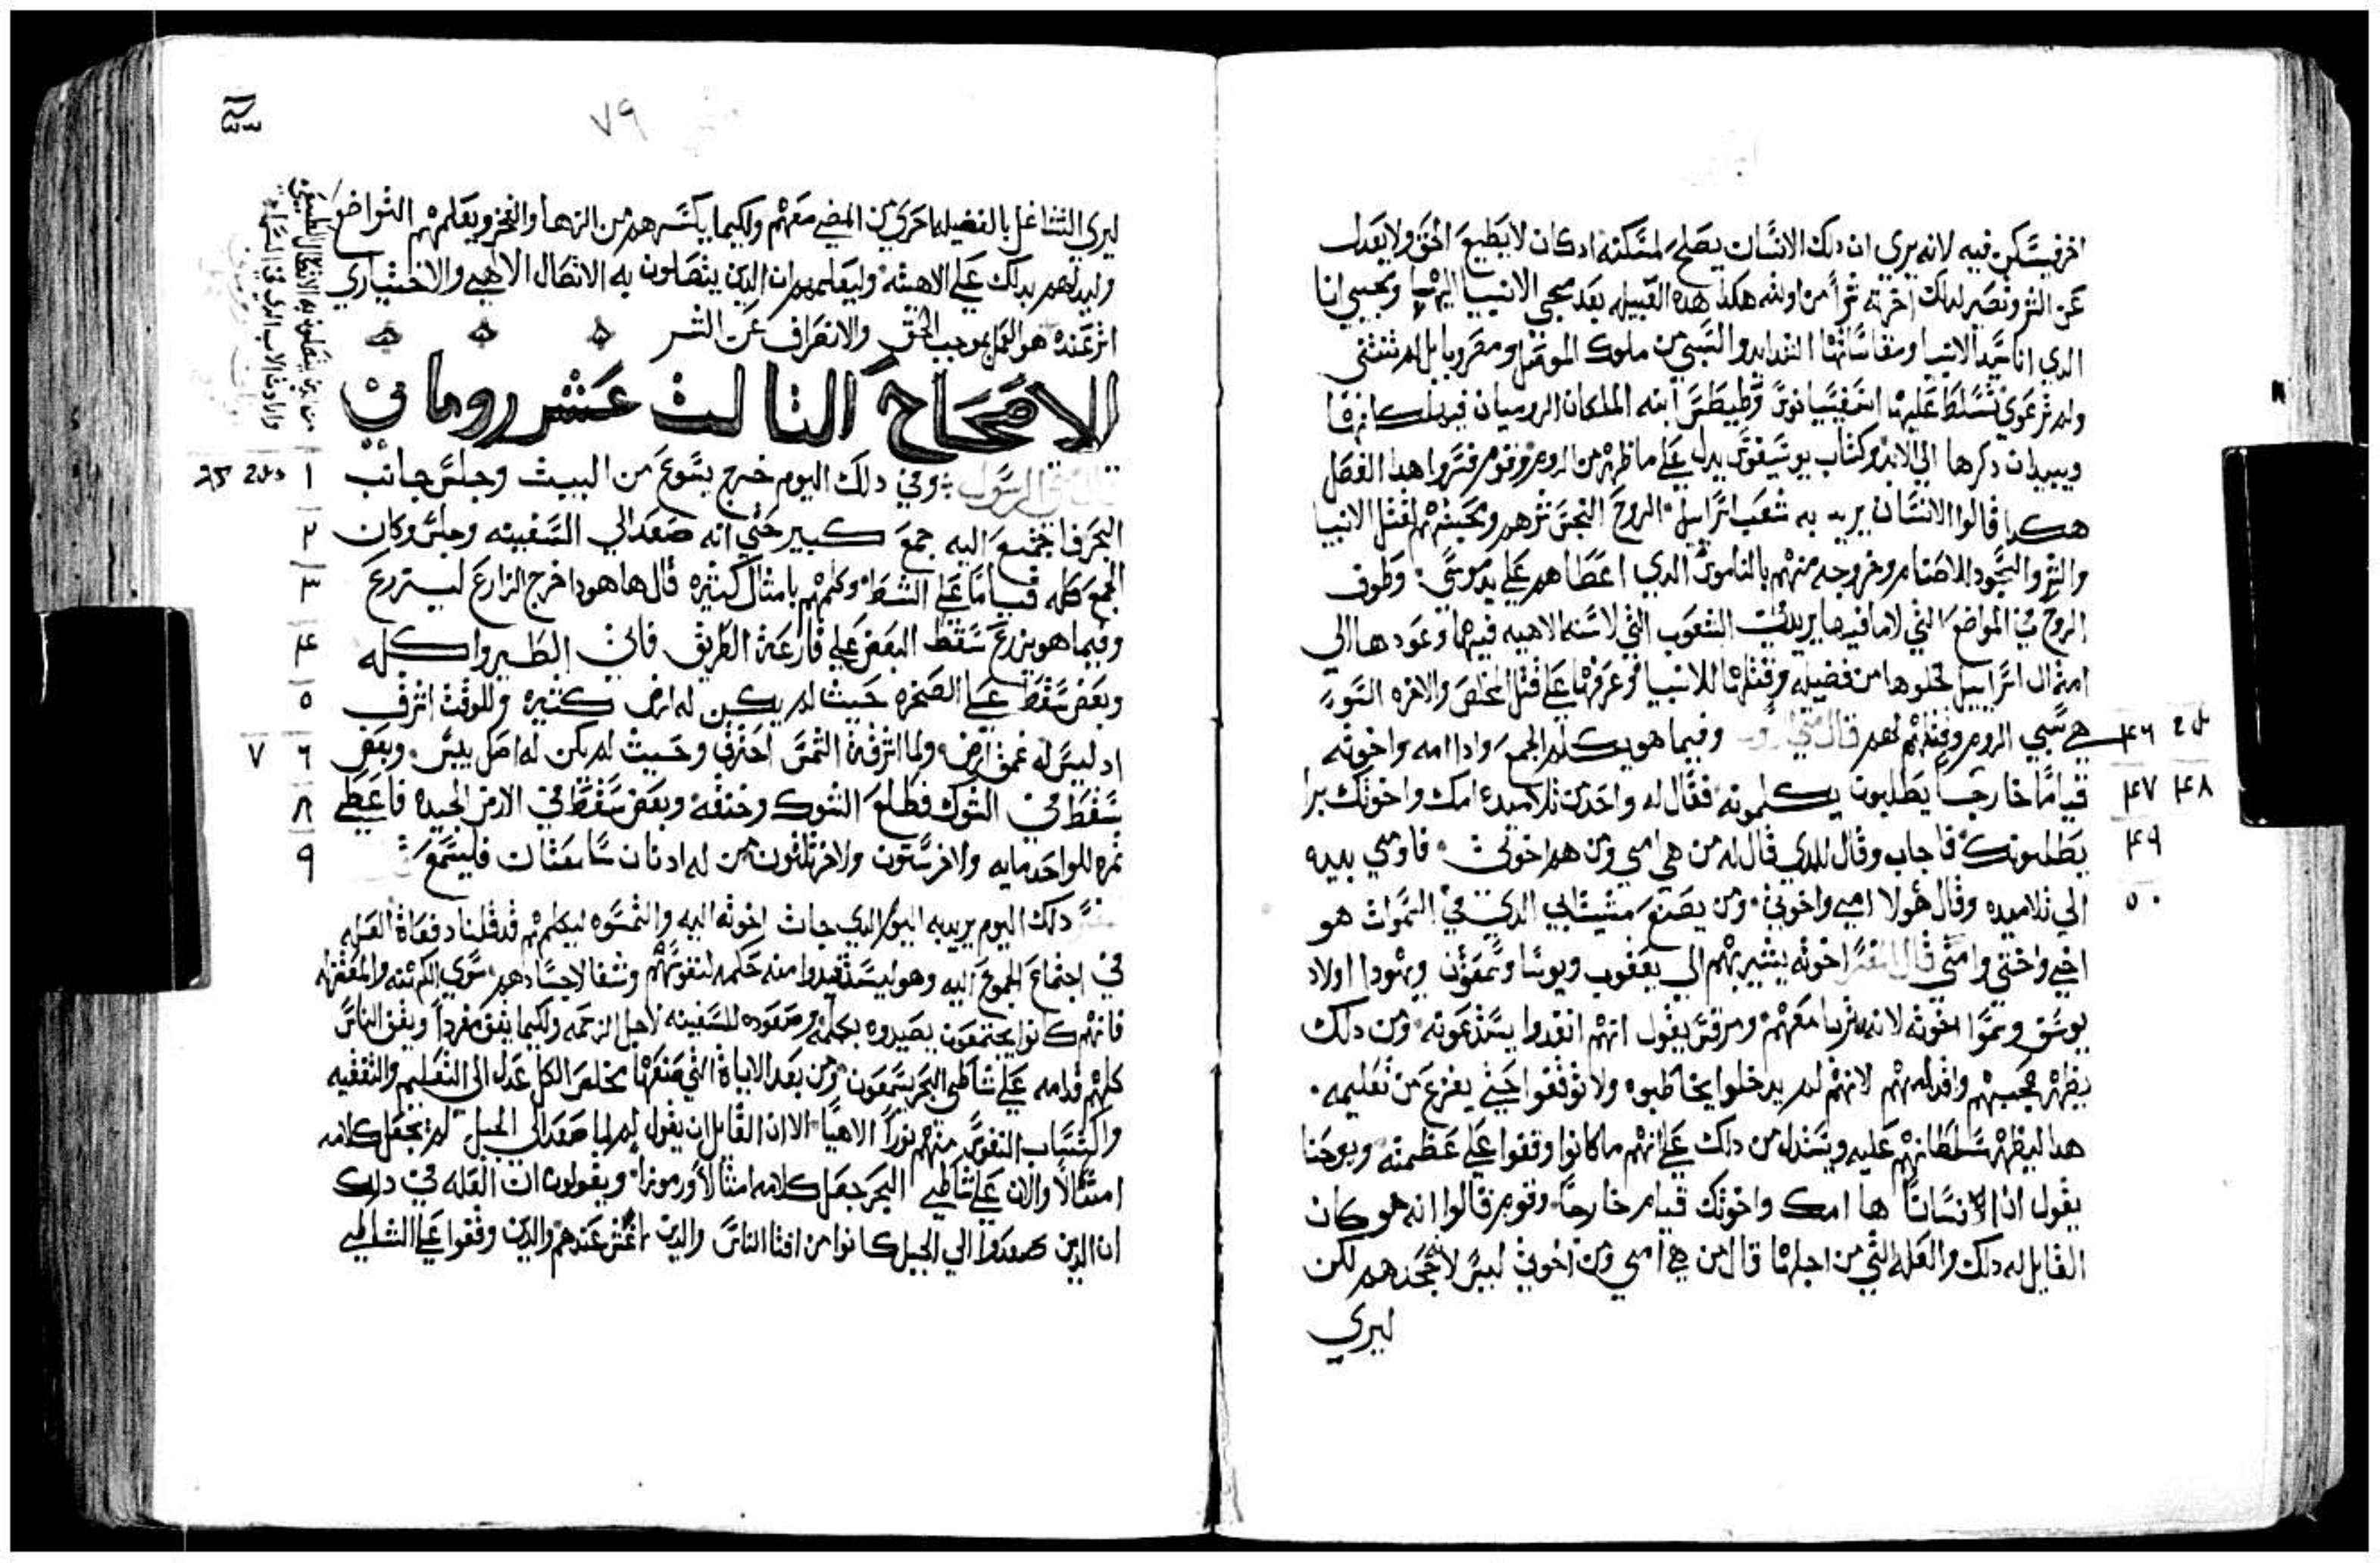 اخر فيسكن فيه لانه يري ان دلك الانسان يصلح لمسكنه ادكان لا يطيع الحق ولا يعدل
عن الشر وتصير لدلك اخرته شراً من اولته هكدا هده القبيله بعد مجي الانبيا اليها ومجيي انا
الدي انا سيد الانبيا ومقاساتها الشدايد والسبي من ملوك الموصل ومصر وبابل لم تنتني
ولم ترعوي تسلط عليها اسفسيانوس وطيطس ابنه الملكان الروميان فيهلكانها
ويبيدان دكرها الي الابد وكتاب يوسيفوس يدل علي ما ظهر من الروم وقوم فسروا هدا الفصل
هكدا قالوا الانسان يريد به شعب اسراييل الروح النجس شرهم ومحبتهم لقتل الانبيا
والشر والسجود للاصنام وخروجه منهم بالناموس الدي اعطاهم علي يد موسي وطوف
الروح في المواضع التي لا ما فيها يريد الشعوب التي لا سنه الاهيه فيها وعودها الي
امتال اسراييل لخلوها من فضيله وقتلها للانبيا وعزفها علي قتل المخلص والاخره السو
هي سبي الروم وقتلهم لهم قال متي الرسول وفيما هو يكلم الجمع وادا امه واخوته
قياماً خارجاً يطلبون يكلمونه فقال له واحد من تلاميده امك واخوتك برا
يطلبونك فاجاب وقال للدي قال له من هي امي ومن هم اخوتي فاومي بيده
الي تلاميده وقال هولا امي واخوتي ومن يصنع مشيه ابي الدي في السموات هو
اخي واختي وامي قال المفسر اخوته يشير بهم الي يعقوب ويوسا وسمعون ويهودا اولاد
يوسف وسموا اخوته لانه تربا معهم ومرقس يقول انهم انفدوا يستدعونه ومن دلك
يظهر عجبهم واقدامهم لانهم لم يدخلوا يخاطبوه ولا توقفوا حتي يفرغ من تعليمه
هدا ليظهر سلطانهم عليه ويستدل من دلك علي انهم ما كانوا وقفوا علي عظمته ويوحنا
يقول ان انساناً ها امك واخوتك قيام خارجاً وقوم قالوا انه هو كان
القايل له دلك والعله التي من اجلها قال من هي امي ومن اخوتي ليس لانه جحدهم لكن
ليري
٤٦
٤٧ ٤٨
٤٩
٥٠
٧٩
ليري التشاغل بالفضيله احري من المضي معهم ولكيما يكسرهم من الزها والفخر ويعلمهم التواضع
وليدلهم بدلك علي الاهيته وليعلمهم ان الدين يتصلون به الاتصال الالهي والاختياري
اثر عنده هو العمل بموجب الحق والانصراف عن الشر
الاصحاح التالت عشر روماني
وفي دلك اليوم خرج يسوع من البيت وجلس جانب
البحر فاجتمع اليه جمع كبير حتي انه صعد الي السفينه وجلس وكان
الجمع كله قياماً علي الشط وكلمهم بامثال كثيره قال ها هودا خرج الزارع ليزرع
وفيما هو يزرع سقط البعض علي قارعة الطريق فاتي الطير واكله
وبعض سقط علي الصخره حيث لم يكن له ارض كثيره وللوقت اشرق
اد ليس له عمق ارض ولما اشرقة الشمس احترق وحيث لم يكن له اصل يبس وبعض
سقط في الشوك فطلع الشوك وخنقه وبعض سقط في الارض الجيده فاعطي
تمره للواحد مايه والاخر ستون والاخر تلتون من له ادنان سامعتان فليسمع
دلك اليوم يريد به اليوم الدي جات اخوته اليه والتمسوه ليكلمهم قد قلنا دفعاة العله
في اجتماع الجموع اليه وهو ليستفيدوا منه حكمه لنفوسهم وشفا لاجسادهم سوي الكهنه والمعتزله
فانهم كانوا يجتمعون يصيدوه بكلمه وصعوده للسفينه لاجل الزحمه ولكيما يقف مفرداً ويقف الناس
كلهم قدامه علي شاطي البحر يسمعون ومن بعد الاياة التي صنعها مخلص الكل عدل الي التعليم والتفقيه
واكتساب النفوس منهم نوراً الاهياً الا ان القايل ان يقول لم لما صعد الي الجبل لم يجعل كلامه
امثالاً والان علي شاطي البحر جعل كلامه امثالاً ورموزاً ويقولون ان العله في دلك
ان الدين صعدوا الي الجبل كانوا من افنا الناس والدين وقفوا علي الشاطي
١
٢
٣
٤
٥
٦ ٧
٨
٩